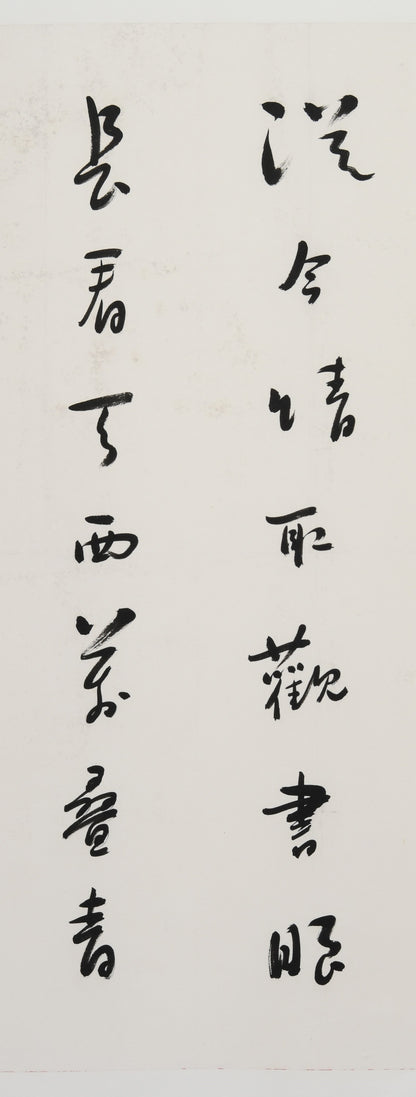 從今惜取觀書眼
長看天西萬疊青